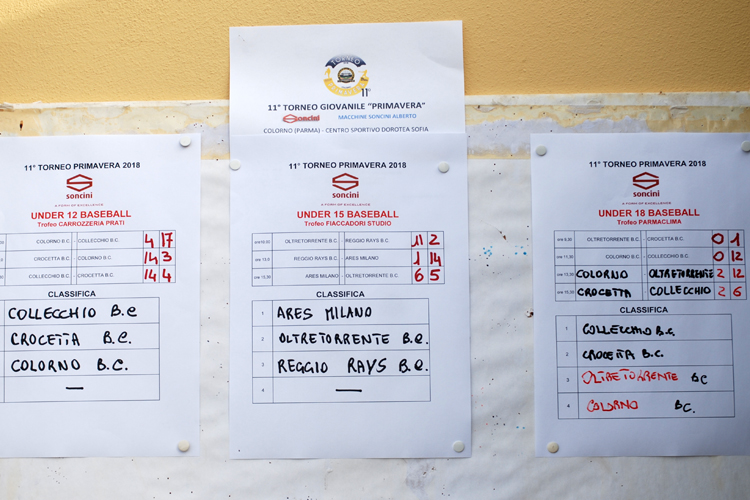 TORNEO
11°
11° TORNEO GIOVANILE "PRIMAVERA"
soncini MACCHINE SONCINI ALBERTO
COLORNO (PARMA) - CENTRO SPORTIVO DOROTEA SOFIA
11° TORNEO PRIMAVERA 2018
soncini
A FORM OF EXCELLENCE
UNDER 12 BASEBALL
Trofeo CARROZZERIA PRATI
COLORNO B.C. - COLLECCHIO B.C. 4 17
CROCETTA B.C. - COLORNO B.C. 14 3
COLLECCHIO B.C. - CROCETTA B.C. 14 4
CLASSIFICA
COLLECCHIO B.C
CROCETTA B.C.
COLORNO B.C.
—
11° TORNEO PRIMAVERA 2018
soncini
A FORM OF EXCELLENCE
UNDER 15 BASEBALL
Trofeo FIACCADORI STUDIO
OLTRETORRENTE B.C. - REGGIO RAYS B.C. 11 2
REGGIO RAYS B.C. - ARES MILANO 1 14
ARES MILANO - OLTRETORRENTE B.C. 6 5
CLASSIFICA
1 ARES MILANO
2 OLTRETORRENTE B.C.
3 REGGIO RAYS B.C.
4 —
11° TORNEO PRIMAVERA 2018
soncini
A FORM OF EXCELLENCE
UNDER 18 BASEBALL
Trofeo PARMACLIMA
OLTRETORRENTE B.C. - CROCETTA B.C. 0 1
COLORNO B.C. - COLLECCHIO B.C. 0 12
COLORNO OLTRETORRENTE 2 12
CROCETTA COLLECCHIO 2 6
CLASSIFICA
1 COLLECCHIO B.C.
2 CROCETTA B.C.
3 OLTRETORRENTE BC
4 COLORNO BC.